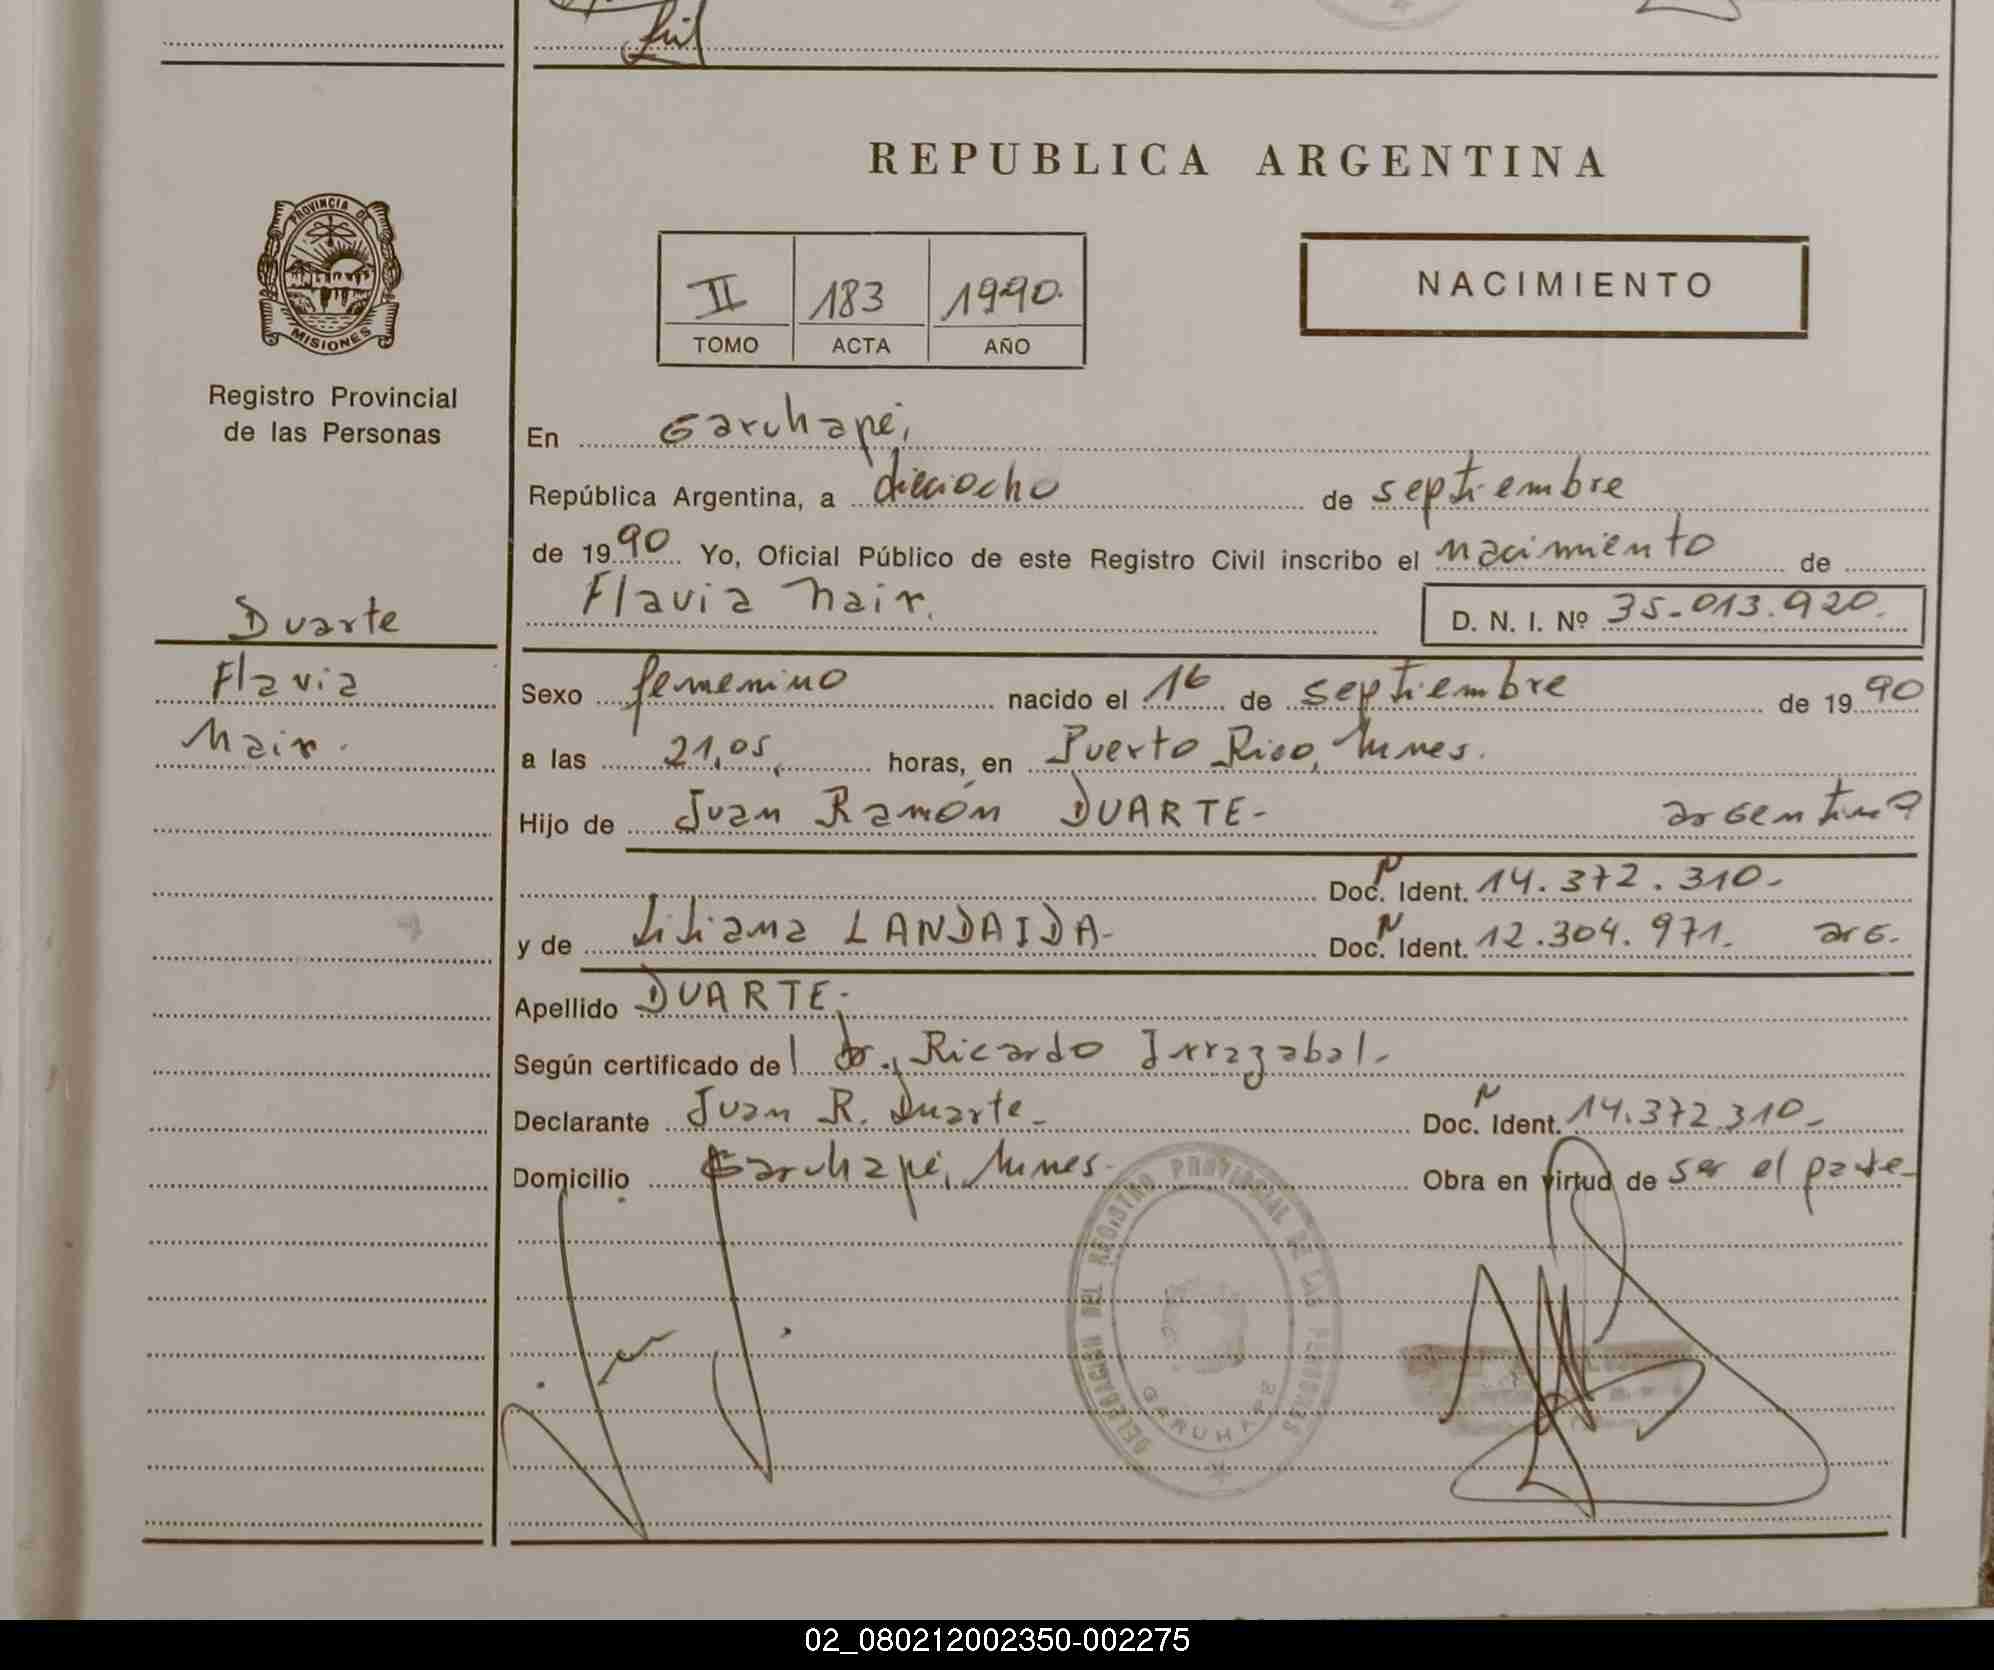 REPUBLICA ARGENTINA
PROVINCIA DE
MISIONES
Registro Provincial
de las Personas
II 183 1990.
TOMO ACTA AÑO
NACIMIENTO
En Garuhapé,
República Argentina, a dieciocho de septiembre
de 1990 Yo, Oficial Público de este Registro Civil inscribo el nacimiento de
Flavia Nair.
D. N. I. Nº 35.013.920.
Duarte
Flavia
Nair.
Sexo femenino nacido el 16 de septiembre de 1990
a las 21,05, horas, en Puerto Rico, Mnes.
Hijo de Juan Ramón DUARTE- argentina
Doc. N Ident. 14.372.310-
y de Liliana LANDAIDA- Doc. N Ident. 12.304.971. arg.
Apellido DUARTE-
Según certificado de l dr., Ricardo Irrazabal-
Declarante Juan R. Duarte- Doc. N Ident. 14.372.310-
Domicilio Garuhapé, Mnes- Obra en virtud de ser el padre-
DELEGACION DEL REGISTRO PROVINCIAL DE LAS PERSONAS
GARUHAPE
02_080212002350-002275